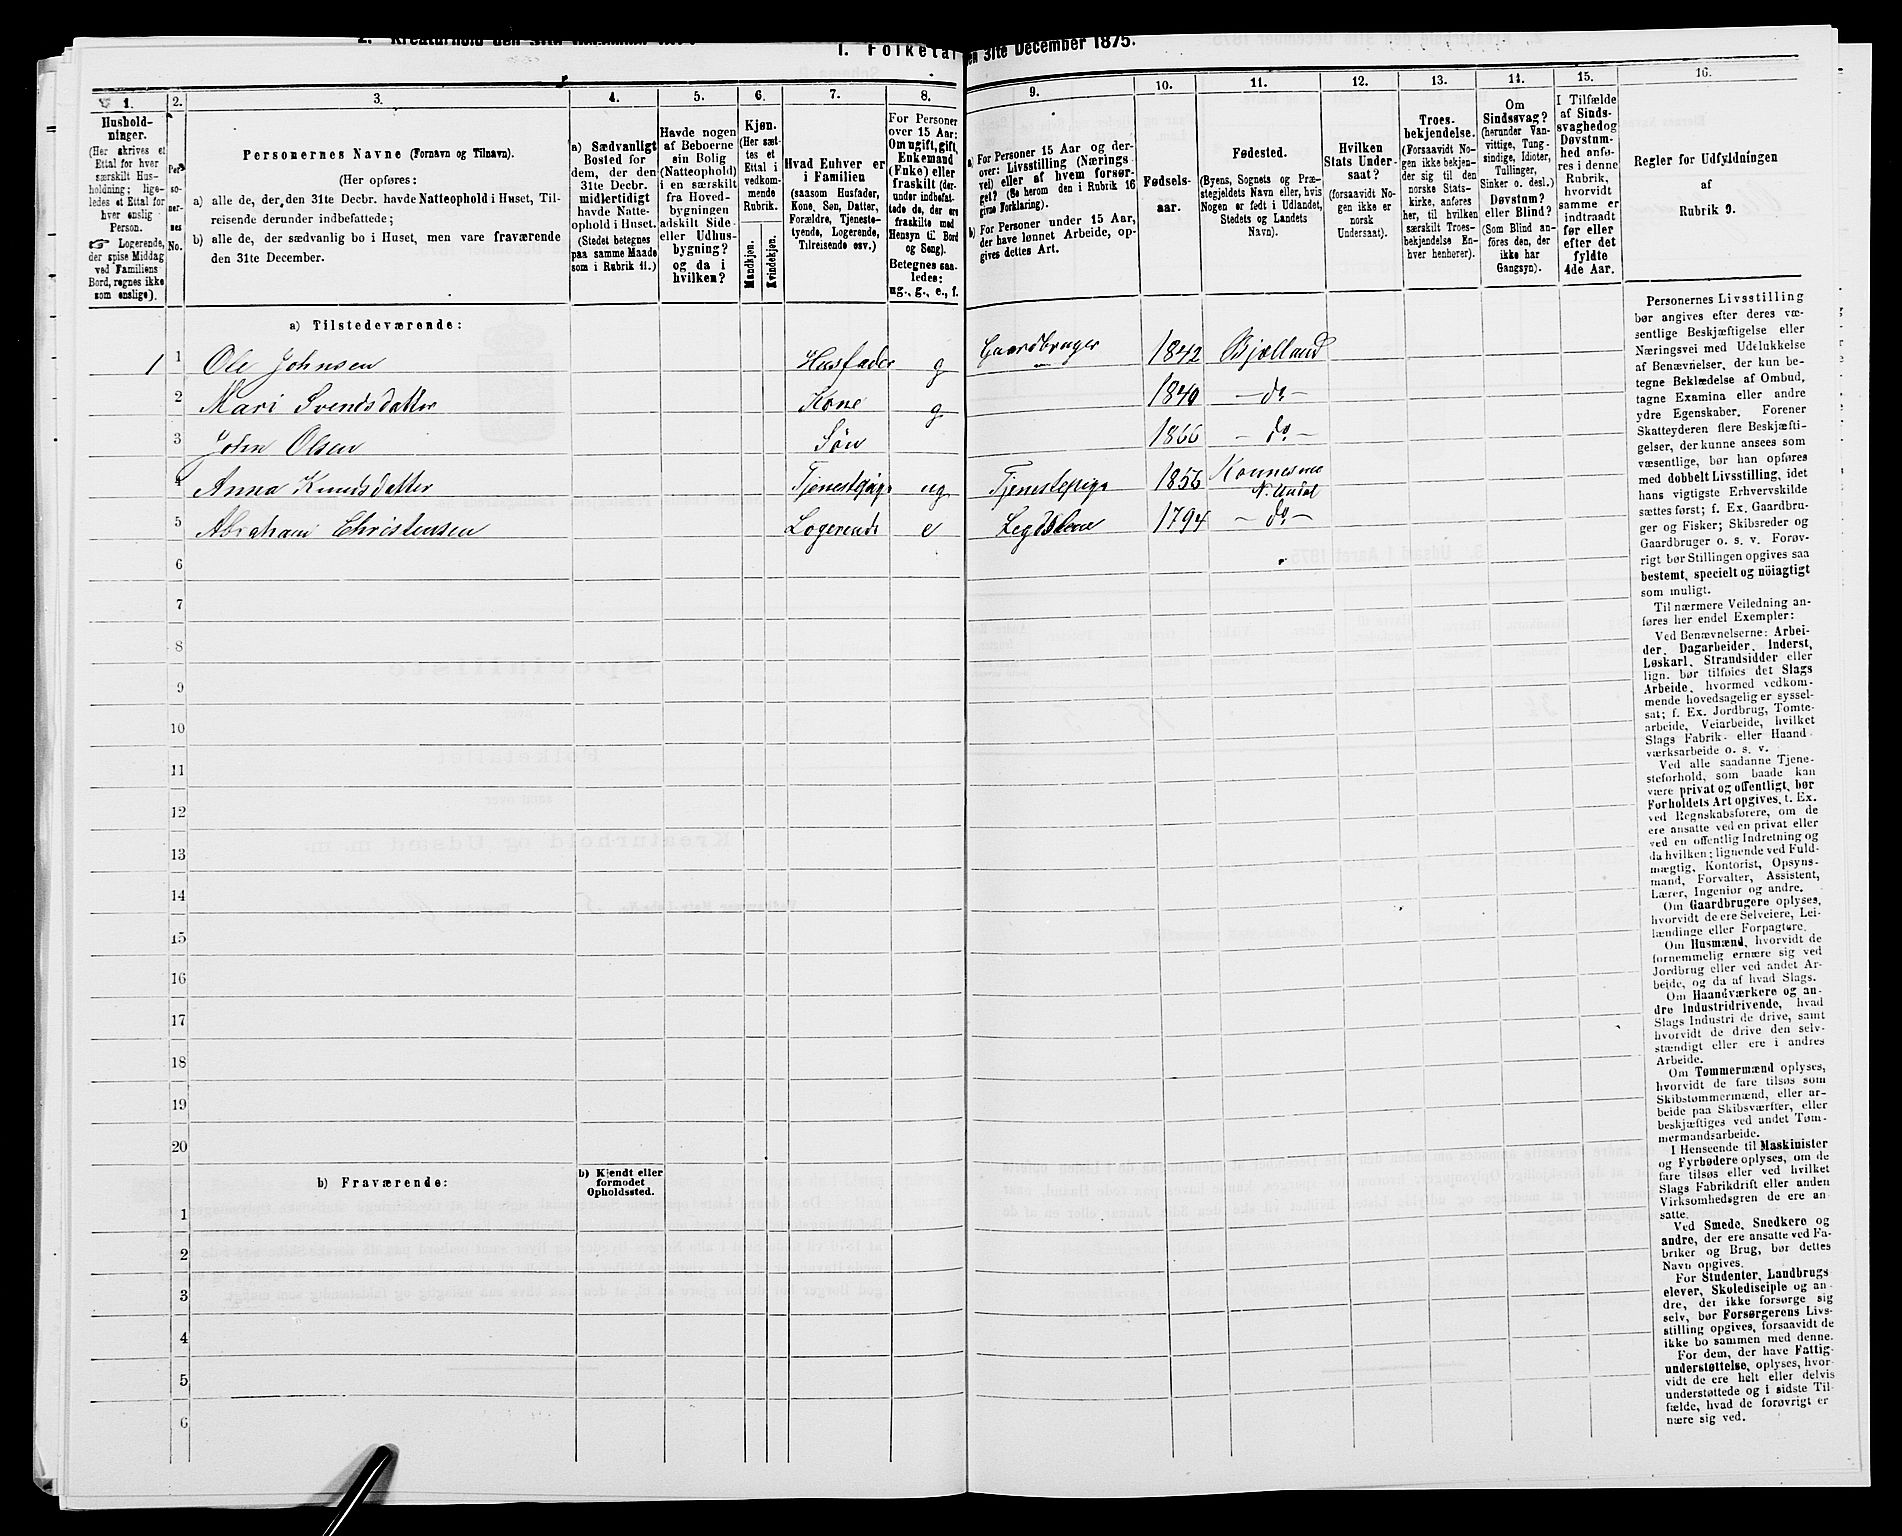 I. Folketal
den 31te December 1875.
1.
Husholdninger.
(Her skrives et
Ettal for hver
særskilt Husholdning; ligeledes et Ettal for
hver enslig
Person.
Logerende,
der spise Middag
ved Familiens
Bord, regnes ikke
som enslige).
2.
Personernes
No.
3.
Personernes Navne (Fornavn og Tilnavn).
(Her opføres:
a) alle de, der den 31te Decbr. havde Natteophold i Huset, Tilreisende derunder indbefattede;
b) alle de, der sædvanlig bo i Huset, men vare fraværende
den 31te December.
4.
a) Sædvanligt
Bosted for
dem, der den
31te Decbr.
midlertidigt
havde Natteophold i Huset.
(Stedet betegnes
paa samme Maade
som i Rubrik 11.)
5.
Havde nogen
af Beboerne
sin Bolig
(Natteophold)
i en særskilt
fra Hovedbygningen
adskilt Side-
eller Udhusbygning?
og da i
hvilken?
6.
Kjøn.
(Her sættes et
Ettal i
vedkommende
Rubrik.
Mandkjøn.
Kvindekjøn.
7.
Hvad Enhver er
i Familien
(saasom Husfader,
Kone, Søn, Datter,
Forældre, Tjenestetyende, Logerende,
Tilreisende osv.)
8.
For Personer
over 15 Aar:
Om ugift, gift,
Enkemand
(Enke) eller
fraskilt (derunder indbefattede de, der ere
fraskilte med
Hensyn til Bord
og Seng).
Betegnes saaledes:
ug., g., e., f.
9.
a) For Personer 15 Aar og derover: Livsstilling (Næringsvei) eller af hvem forsørget? (Se herom den i Rubrik 16
givne Forklaring).
b) For Personer under 15 Aar,
der have lønnet Arbeide, opgives dettes Art.
10.
Fødselsaar.
11.
Fødested.
(Byens, Sognets og Præstegjeldets Navn eller, hvis
Nogen er født i Udlandet,
Stedets og Landets
Navn).
12.
Hvilken
Stats Undersaat?
(forsaavidt Nogen ikke er
norsk
Undersaat).
13.
Troesbekjendelse.
(Forsaavidt Nogen ikke bekjender sig til den
norske Statskirke, anføres
her, til hvilken
særskilt Troesbekjendelse Enhver henhører).
14.
Om
Sindssvag?
(herunder Vanvittige, Tungsindige, Idioter,
Tullinger,
Sinker o. desl.)
Døvstum?
eller Blind?
(Som Blind anføres den, der
ikke har
Gangsyn).
15.
I Tilfælde
af Sindssvaghed og
Døvstumhed anføres i denne
Rubrik,
hvorvidt
samme er
indtraadt
før eller
efter det
fyldte
4de Aar.
16.
Regler for Udfyldningen
af
Rubrik 9.
a) Tilstedeværende:
1 1 Ole Johnsen Husfader g Gaardbruger 1842 Bjelland
2 Mari Svendsdatter Kone g 1840 – do –
3 John Olsen Søn 1866 – do –
4 Anna Knudsdatter Tjenestepige ug Tjenestepige 1856 N. Undal
5 Abraham Christensen Logerende e Legdslem 1794 – do –
6
7
8
9
10
11
12
13
14
15
16
17
18
19
20
b) Fraværende:
b) Kjendt eller
formodet
Opholdssted.
1
2
3
4
5
6
Personernes Livsstilling
bør angives efter deres væsentlige Beskjæftigelse eller
Næringsvei med Udelukkelse
af Benævnelser, der kun betegne Beklædelse af Ombud,
tagne Examina eller andre
ydre Egenskaber. Forener
Skatteyderen flere Beskjæftigelser, der kunne ansees som
væsentlige, bør han opføres
med dobbelt Livsstilling, idet
hans vigtigste Erhvervskilde
sættes først; f. Ex. Gaardbruger og Fisker; Skibsreder og
Gaardbruger o. s. v. Forøvrigt bør Stillingen opgives saa
bestemt, specielt og nöiagtigt
som muligt.
Til nærmere Veiledning anføres her endel Exempler:
Ved Benævnelserne: Arbeider, Dagarbeider, Inderst,
Løskarl, Strandsidder eller
lign. bør tilføies det Slags
Arbeide, hvormed vedkommende hovedsagelig er sysselsat; f. Ex. Jordbrug, Tomtearbeide, Veiarbeide, hvilket
Slags Fabrik- eller Haandværksarbeide o. s. v.
Ved alle saadanne Tjenesteforhold, som baade kan
være privat og offentligt, bør
Forholdets Art opgives, t. Ex.
ved Regnskabsførere, om de
ere ansatte ved en privat eller
ved en offentlig Indretning og
da hvilken; lignende ved Fuldmægtig, Kontorist, Opsynsmand, Forvalter, Assistent,
Lærer, Ingeniør og andre.
Om Gaardbrugere oplyses,
hvorvidt de ere Selveiere, Leilændinge eller Forpagtere.
Om Husmænd, hvorvidt de
fornemmelig ernære sig ved
Jordbrug eller ved andet Arbeide, og da af hvad Slags.
Om Haandværkere og andre Industridrivende, hvad
Slags Industri de drive, samt
hvorvidt de drive den selvstændigt eller ere i andres
Arbeide.
Om Tømmermænd oplyses,
hvorvidt de fare tilsøs som
Skibstømmermænd, eller arbeide paa Skibsværfter, eller
beskjæftiges ved andet Tømmermandsarbeide.
I Henseende til Maskinister
og Fyrbødere oplyses, om de
fare tilsøs eller ved hvilket
Slags Fabrikdrift eller anden
Virksomhedsgren de ere ansatte.
Ved Smede, Snedkere og
andre, der ere ansatte ved Fabriker og Brug, bør dettes
Navn opgives.
For Studenter, Landbrugselever, Skoledisciple og andre, der ikke forsørge sig
selv, bør Forsørgerens Livsstilling opgives, forsaavidt de
ikke bo sammen med denne.
For dem, der have Fattigunderstøttelse, oplyses, hvorvidt de ere helt eller delvis
understøttede og i sidste Tilfælde, hvad de forøvrigt ernære sig ved.